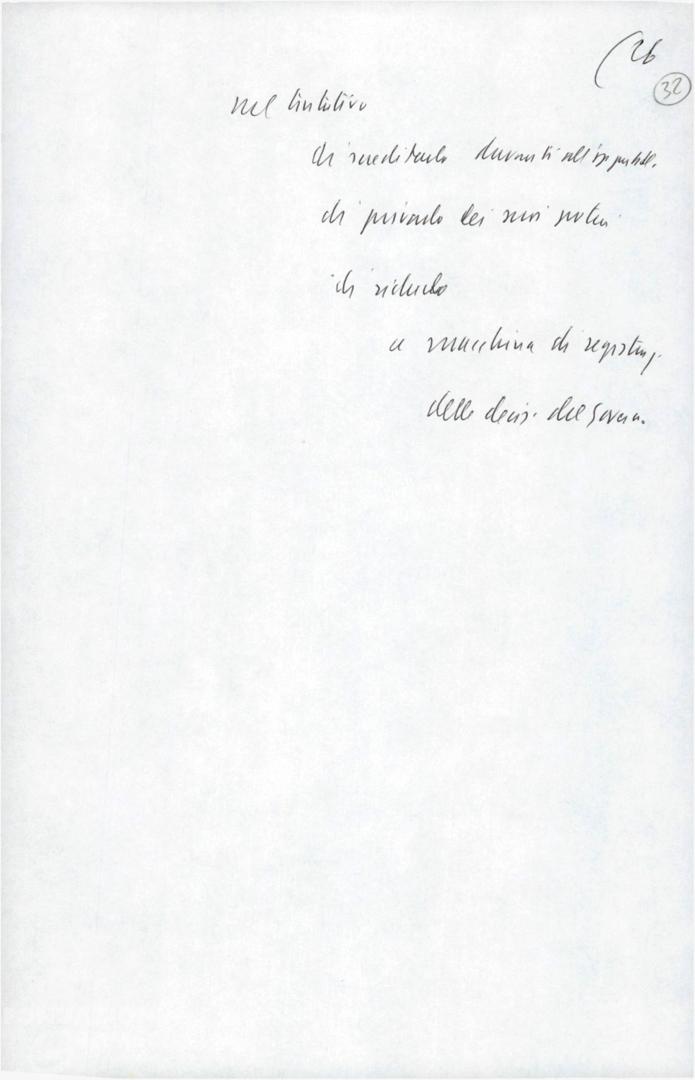 (26
32
nel tentativo
di screditarlo davanti all'op. pubbl.
di privarlo dei suoi poteri
di ridurlo
a macchina di registraz.
delle decis. del Govern.